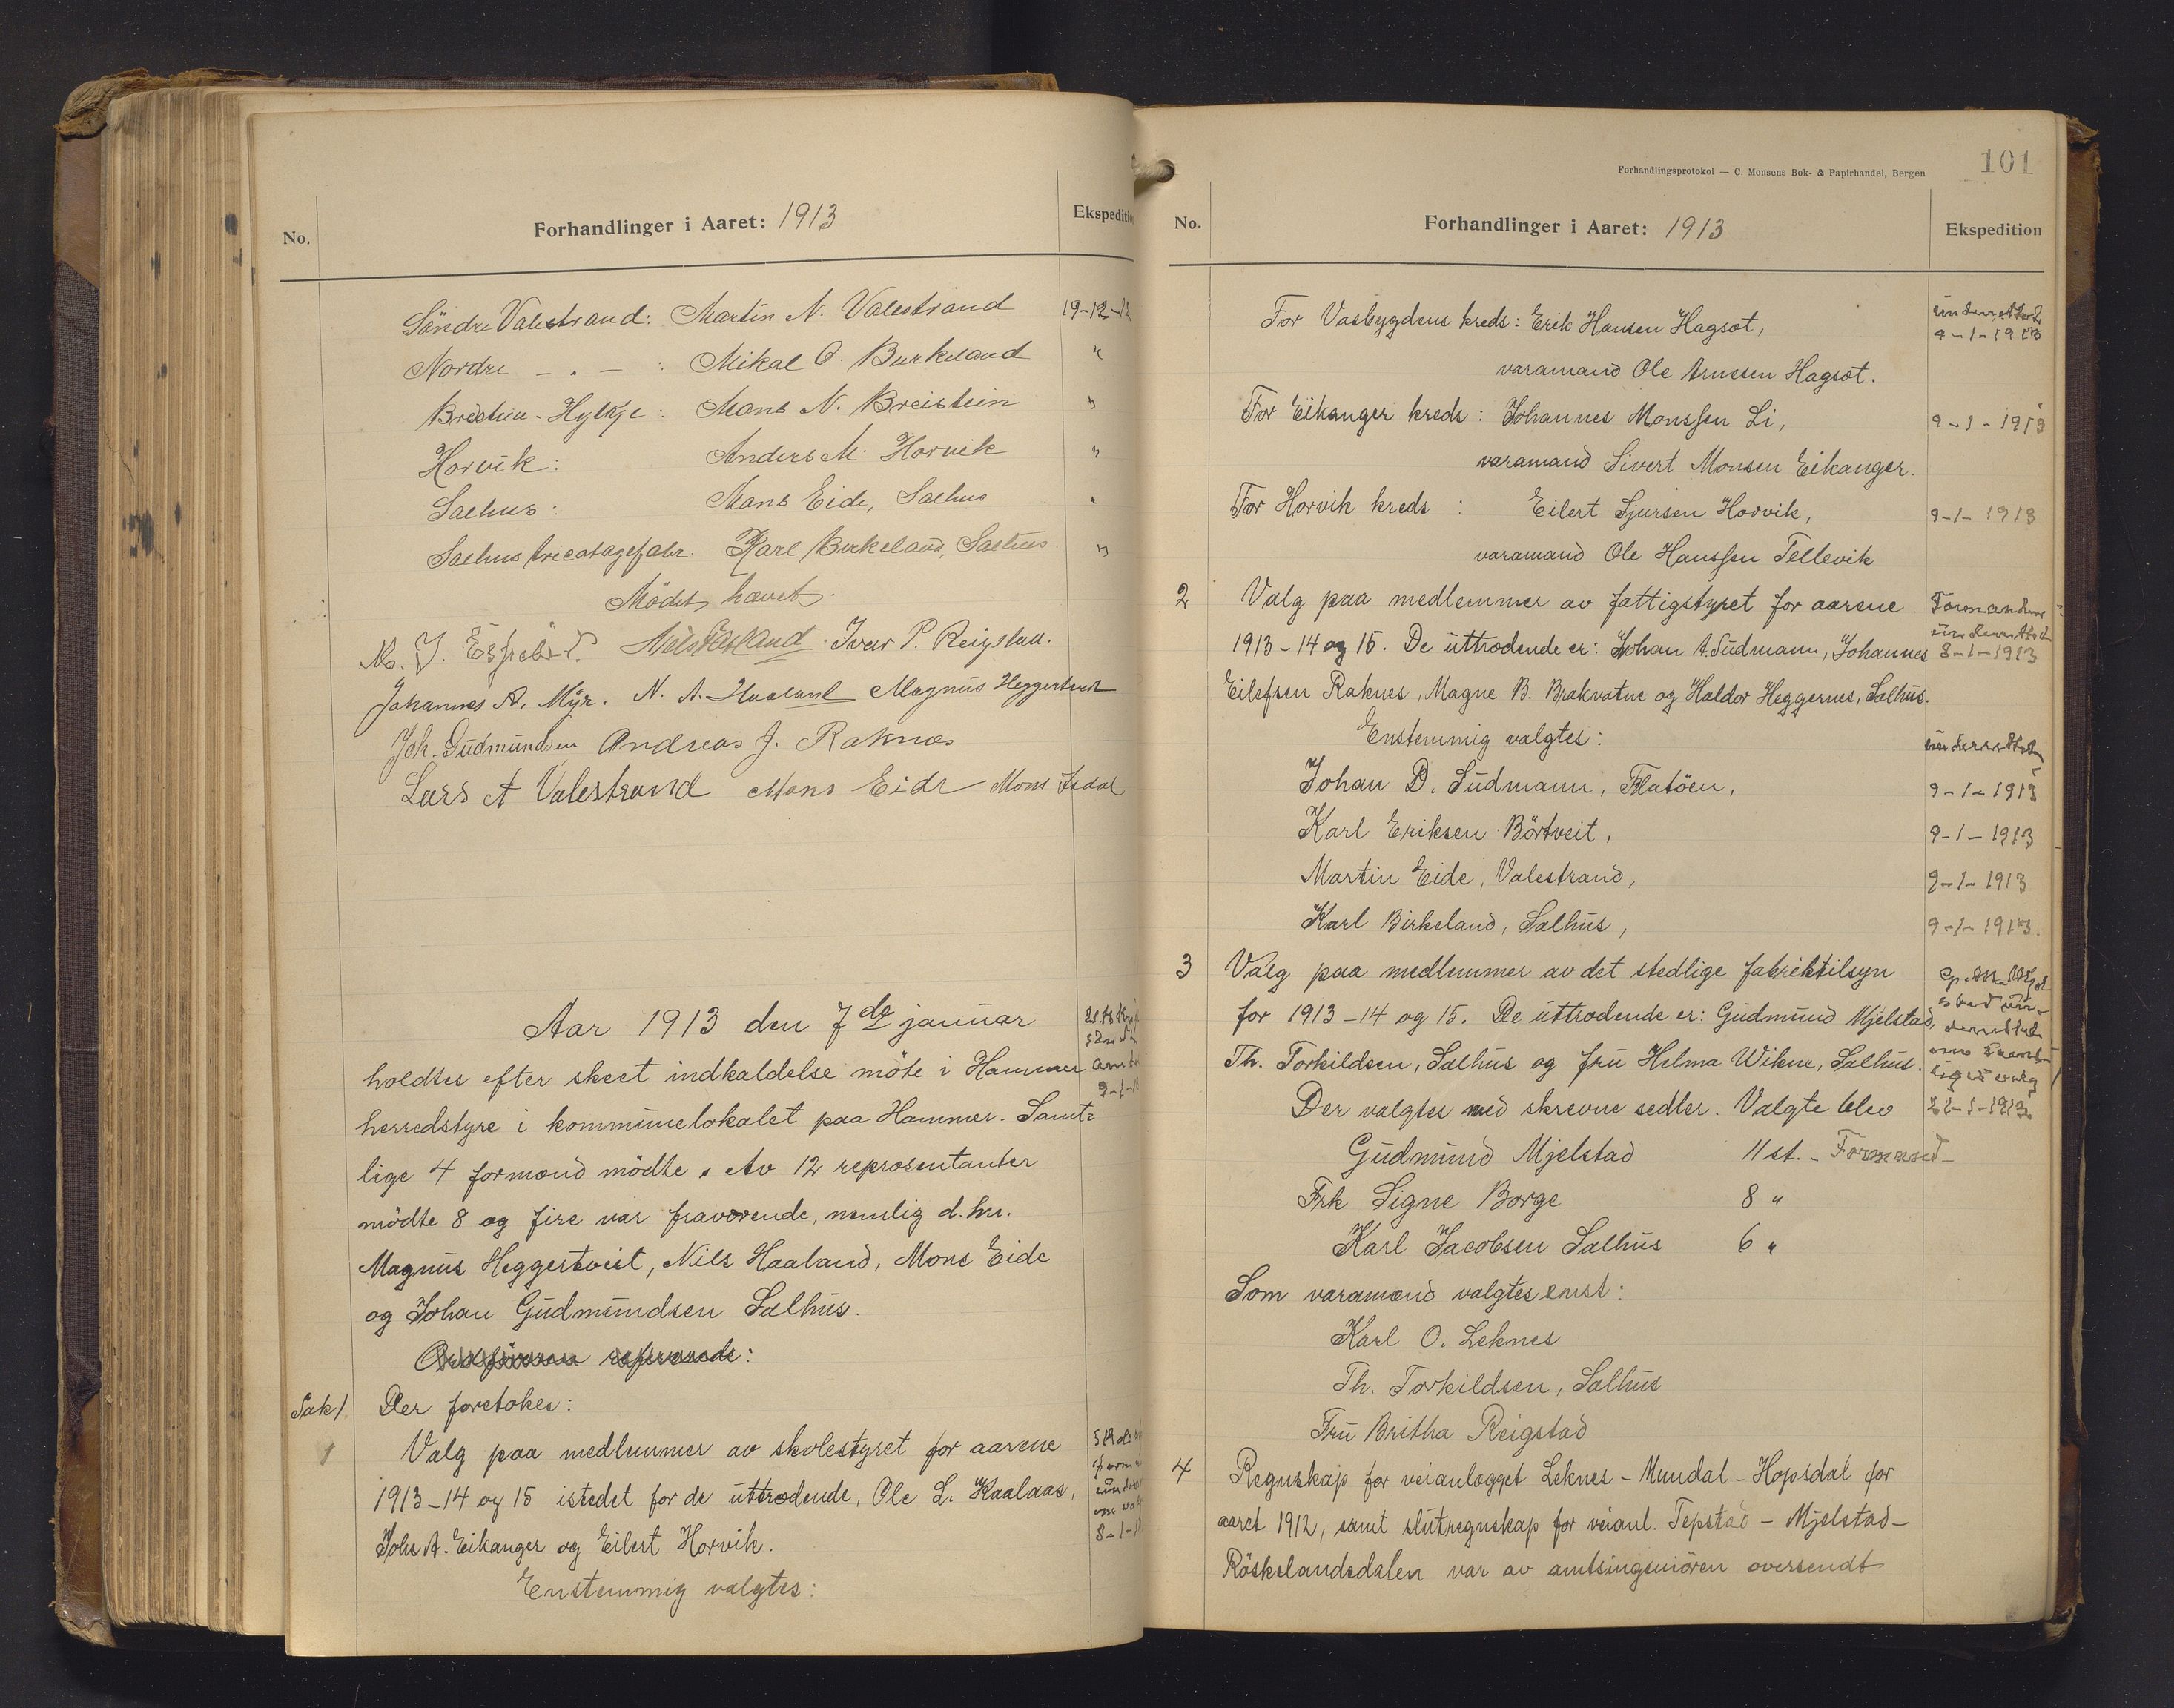 No.
Forhandlinger i Aaret: 1913
Ekspedition
Söndre Valestrand: Martin N. Valestrand 19-12-12
Nordre — „ — : Mikal O. Burkeland "
Breistein - Hylkje: Mons N. Breistein "
Horvik: Anders M. Horvik "
Salhus: Mons Eide, Salhus "
Salhus tricotagefabr. Karl Birkeland, Salhus "
Mödet hævet.
Ivar P. Reigstad.
Johannes A. Myr. N. A. Haaland Magnus Heggertveit
Joh. Gudmundsen Andreas J. Raknes
Lars A Valestrand Mons Eide Mons Isdal
Aar 1913 den 7de januar
holdtes efter skeet indkaldelse möte i Hammer
herredstyre i kommunelokalet paa Hammer. Samt-
lige 4 formænd mödte. Av 12 repræsentanter
mödte 8 og fire var fraværende, nemlig d.hr.
Magnus Heggertveit, Nils Haaland, Mons Eide
og Johan Gudmundsen Salhus.
Ordföreren refererede:
Sak 1. Der foretokes:
1 Valg paa medlemmer av skolestyret for aarene
1913-14 og 15 istedet for de uttrædende, Ole L. Kaalaas,
Johs A. Eikanger og Eilert Horvik.
8-1-13
Enstemmig valgtes:
Forhandlingsprotokol — C. Monsens Bok- & Papirhandel, Bergen
101
No.
Forhandlinger i Aaret: 1913
Ekspedition
For Vasbygdens kreds: Erik Hansen Hagsæt, underrettet
9-1-1913
varamand Ole Arnesen Hagsæt.
For Eikanger kreds: Johannes Monssen Li, 9-1-1913
varamand Sivert Monsen Eikanger.
For Horvik kreds : Eilert Sjursen Horvik, 9-1-1913
varamand Ole Hanssen Tellevik
2 Valg paa medlemmer av fattigstyret for aarene Formanden
underrettet
1913-14 og 15. De uttrædende er: Johan A. Sudmann, Johannes 8-1-1913
Eilefsen Raknes, Magne B. Brakvatne og Haldor Heggernes, Salhus.
Enstemmig valgtes: underrettet
Johan D. Sudmann, Flatöen, 9-1-1913
Karl Eriksen Börtveit, 9-1-1913
Martin Eide, Valestrand, 9-1-1913
Karl Birkeland, Salhus, 9-1-1913.
3 Valg paa medlemmer av det stedlige fabriktilsyn
for 1913-14 og 15. De uttrædende er: Gudmund Mjelstad,
Th. Torkildsen, Salhus og fru Helma Wikne, Salhus.
G. M. Mjel
stad un-
derrettet
om
valg
21-1-1913
Der valgtes med skrevne sedler. Valgte blev
Gudmund Mjelstad 11 st. - Formand -
Frk Signe Borge 8 "
Karl Jacobsen Salhus 6 "
Som varamænd valgtes enst:
Karl O. Leknes
Th. Torkildsen, Salhus
Fru Britha Reigstad
4 Regnskap for veianlægget Leknes - Mundal - Hopsdal for
aaret 1912, samt slutregnskap for veianl. Tepstad - Mjelstad -
Röskelandsdalen var av amtsingeniören oversendt